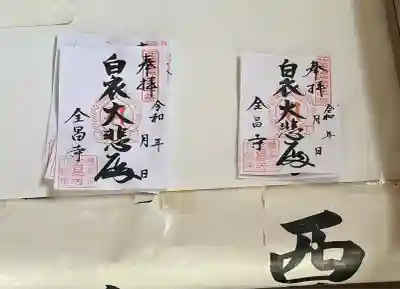 奉拝
令和 年 月 日
白衣大悲殿
全昌寺
奉拝
令和 年 月 日
白衣大悲殿
全昌寺
西